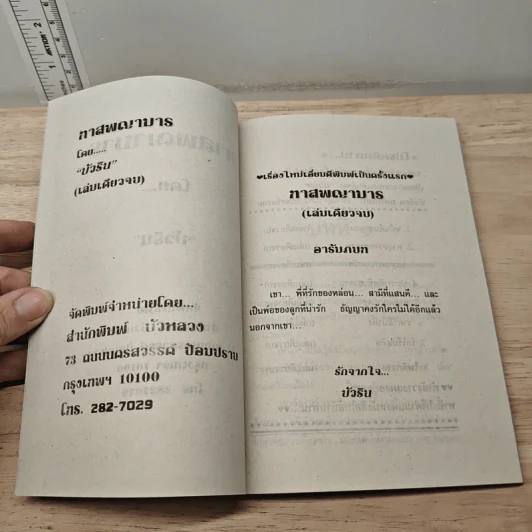 ทาสพญามาร
โดย.....
"บัวริน"
(เล่มเดียวจบ)
จัดพิมพ์จำหน่ายโดย...
สำนักพิมพ์ บัวหลวง
73 ถนนนครสวรรค์ ป้อมปราบ
กรุงเทพฯ 10100
โทร. 282-7029
♥เรื่องใหม่เอี่ยมตีพิมพ์เป็นครั้งแรก♥
ทาสพญามาร
(เล่มเดียวจบ)
อารัมภบท
เขา... ที่ที่รักของหล่อน... สามีที่แสนดี... และ
เป็นพ่อของลูกที่น่ารัก ธัญญาคงรักใครไม่ได้อีกแล้ว
นอกจากเขา...
รักจากใจ...
บัวริน